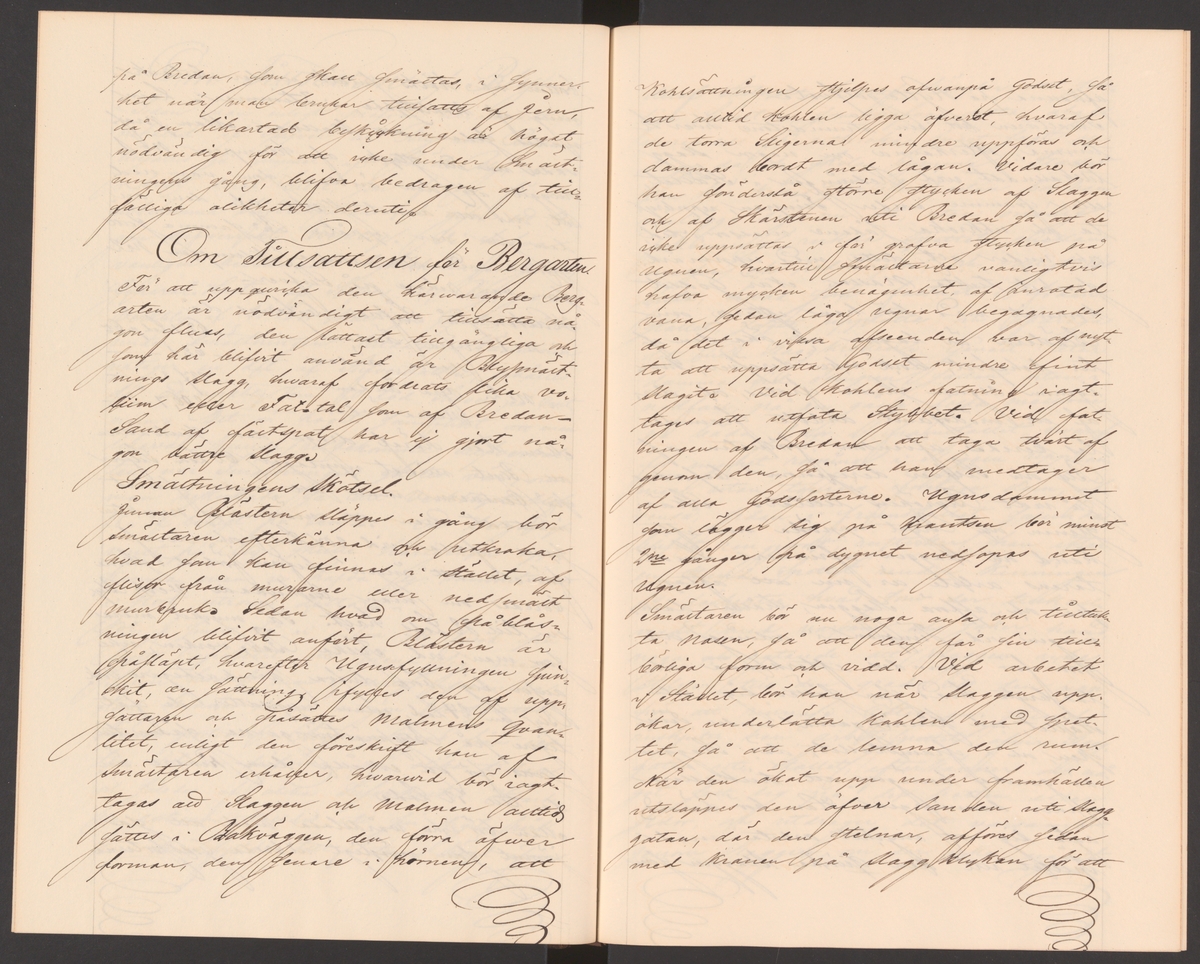 på Bredan, som skall smältas, i synner-
het när man brukar tillsatts af Jern,
då en likartad beskickning är högst
nödvändig för att icke under Smält-
ningens gång, blifva bedragen af till-
fälliga olikheter deruti.
Om Tillsattsen för Bergarten.
För att uppqvicka den härwarande Berg-
arten är nödvändigt att tillsätta nå-
gon fluss, den lättast tillgängliga och
som här blifvit använd är Blysmält-
nings slagg, hwaraf fordrats lika vo-
lum eller Fat-tal som af Bredan—
Sand af fältspat har ej gjort nå-
gon bättre slagg.
Smältningens Skötsel.
Innan Blästern släppes i gång bör
Smältaren efterkänna och utkraka,
hvad som kan finnas i stället, af
flisor från murarne eller nedsmält
murbruk. Sedan hvad om påblås-
ningen blifvit anfört, Blästern är
påsläpt, hvarefter Ugnsfyllningen sjun-
kit, en sättning, fylles den af upp-
sättaren och påsättes Malmens Qvan-
titet, enligt den föreskrift han af
Smältaren erhåller, hwarwid bör iagt-
tagas att Slaggen och Malmen alltid
sättes i Bakväggen, den förra öfwer
forman, den senare i hörnen, att
Kohlsättningen hjelpes ofwanpå Godset, så
att alltid Kohlen ligga öfverst, hvaraf
de torra Sligerna mindre uppföras och
dammas bordt med lågan. Vidare bör
han sönderslå större stycken af Slaggen
och af Skärstenen uti Bredan så att de
icke uppsättas i för grofva stycken på
Ugnen, hvartill Smältarne vanligtvis
hafva mycken benägenhet, af inrotad
vana, sedan låga ugnar begagnades,
då det i vissa afseenden var af nyt-
ta att uppsätta Godset mindre fint
slagit. Vid Kohlens fatning iagt-
tages att utfata Stybbet. Vid fat-
ningen af Bredan att taga tvärt af
genom den, så att han medtager
af alla Godssorterne. Ugnsdammet
som lägger sig på Krantsen bör minst
2ne gånger på dygnet nedsopas uti
Ugnen.
Smältaren bör nu noga ansa och tillluk-
ta Nasen, så att den får sin till-
börliga form och vidd. Vid arbetet
i Stället, bör han när slaggen upp-
ökar, underlätta Kohlen med spet-
tet, så att de lemna den rum.
När den ökat upp under framhällen
utsläppes den öfver Sanden uti Slagg-
gatan, där den stelnar, afföres sedan
med Kranen på slagg klykan för att